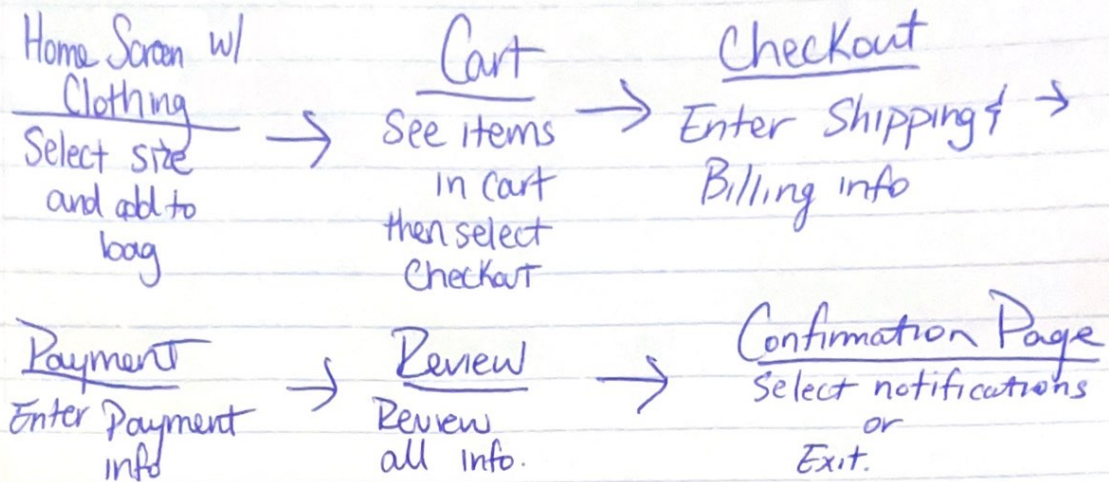 Home Screen w/
Clothing
Select size
and add to
bag
→
Cart
See items
in cart
then select
Checkout
→
Checkout
Enter Shipping &
Billing info
→
Payment
Enter Payment
info
→
Review
Review
all info.
→
Confirmation Page
Select notifications
or
Exit.